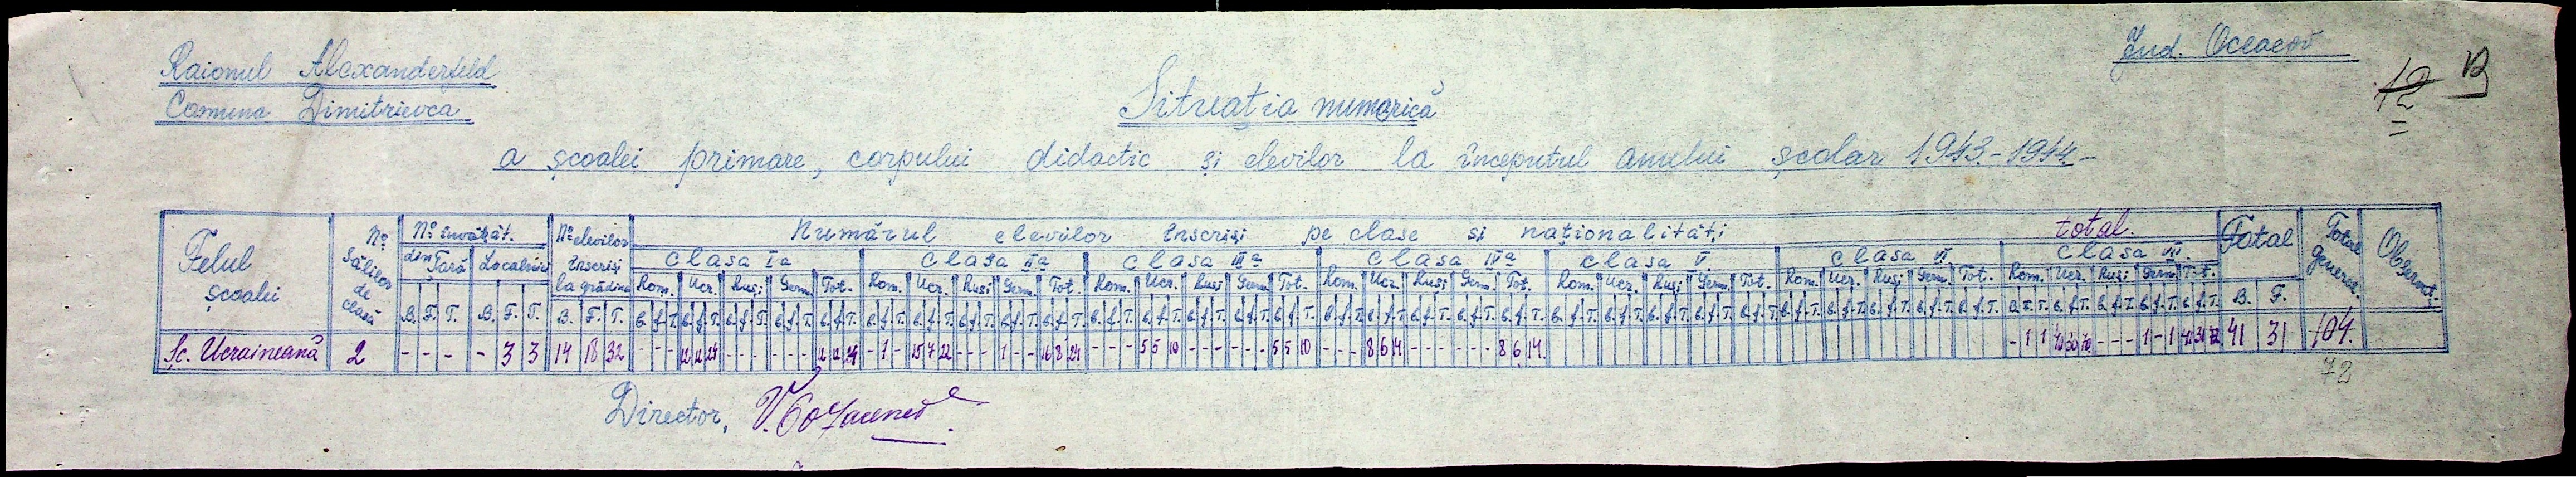 Jud. Oceacov
Raionul Alexanderfeld
12 B
Comuna Dimitrievca
Situația numerică
a școalei primare, corpului didactic și elevilor la începutul anului școlar 1943-1944-
Felul școalei | Nº Sălilor de clasă | Nº învățăt. | Nº elevilor înscriși la grădina | Numărul elevilor înscriși pe clase și naționalități | total. | Total | Total general. | Observat.
din Țară | Localnici | Clasa I a | Clasa II a | Clasa III a | Clasa IV a | Clasa V. | Clasa VI. | Clasa VII.
Rom. Ucr. Ruși Germ. Tot. | Rom. Ucr. Ruși Germ. Tot. | Rom. Ucr. Ruși Germ. Tot. | Rom. Ucr. Ruși Germ. Tot. | Rom. Ucr. Ruși Germ. Tot. | Rom. Ucr. Ruși Germ. Tot. | Rom. Ucr. Ruși Germ. Tot.
B. F. T. | B. F. T. | B. F. T. | b. f. T. b. f. T. b. f. T. b. f. T. b. f. T. | b. f. T. b. f. T. b. f. T. b. f. T. b. f. T. | b. f. T. b. f. T. b. f. T. b. f. T. b. f. T. | b. f. T. b. f. T. b. f. T. b. f. T. b. f. T. | b. f. T. b. f. T. b. f. T. b. f. T. b. f. T. | b. f. T. b. f. T. b. f. T. b. f. T. b. f. T. | b. f. T. b. f. T. b. f. T. b. f. T. b. f. T. | B. F.
Șc. Ucraineană | 2 | - - - | - 3 3 | 14 18 32 | - - - 12 12 24 - - - - - - 12 12 24 | - 1 - 15 7 22 - - - 1 - - 16 8 24 | - - - 5 5 10 - - - - - - 5 5 10 | - - - 8 6 14 - - - - - - 8 6 14. | - 1 1 40 30 70 - - - 1 - 1 41 31 72 | 41 31 | 104.
72
Director,